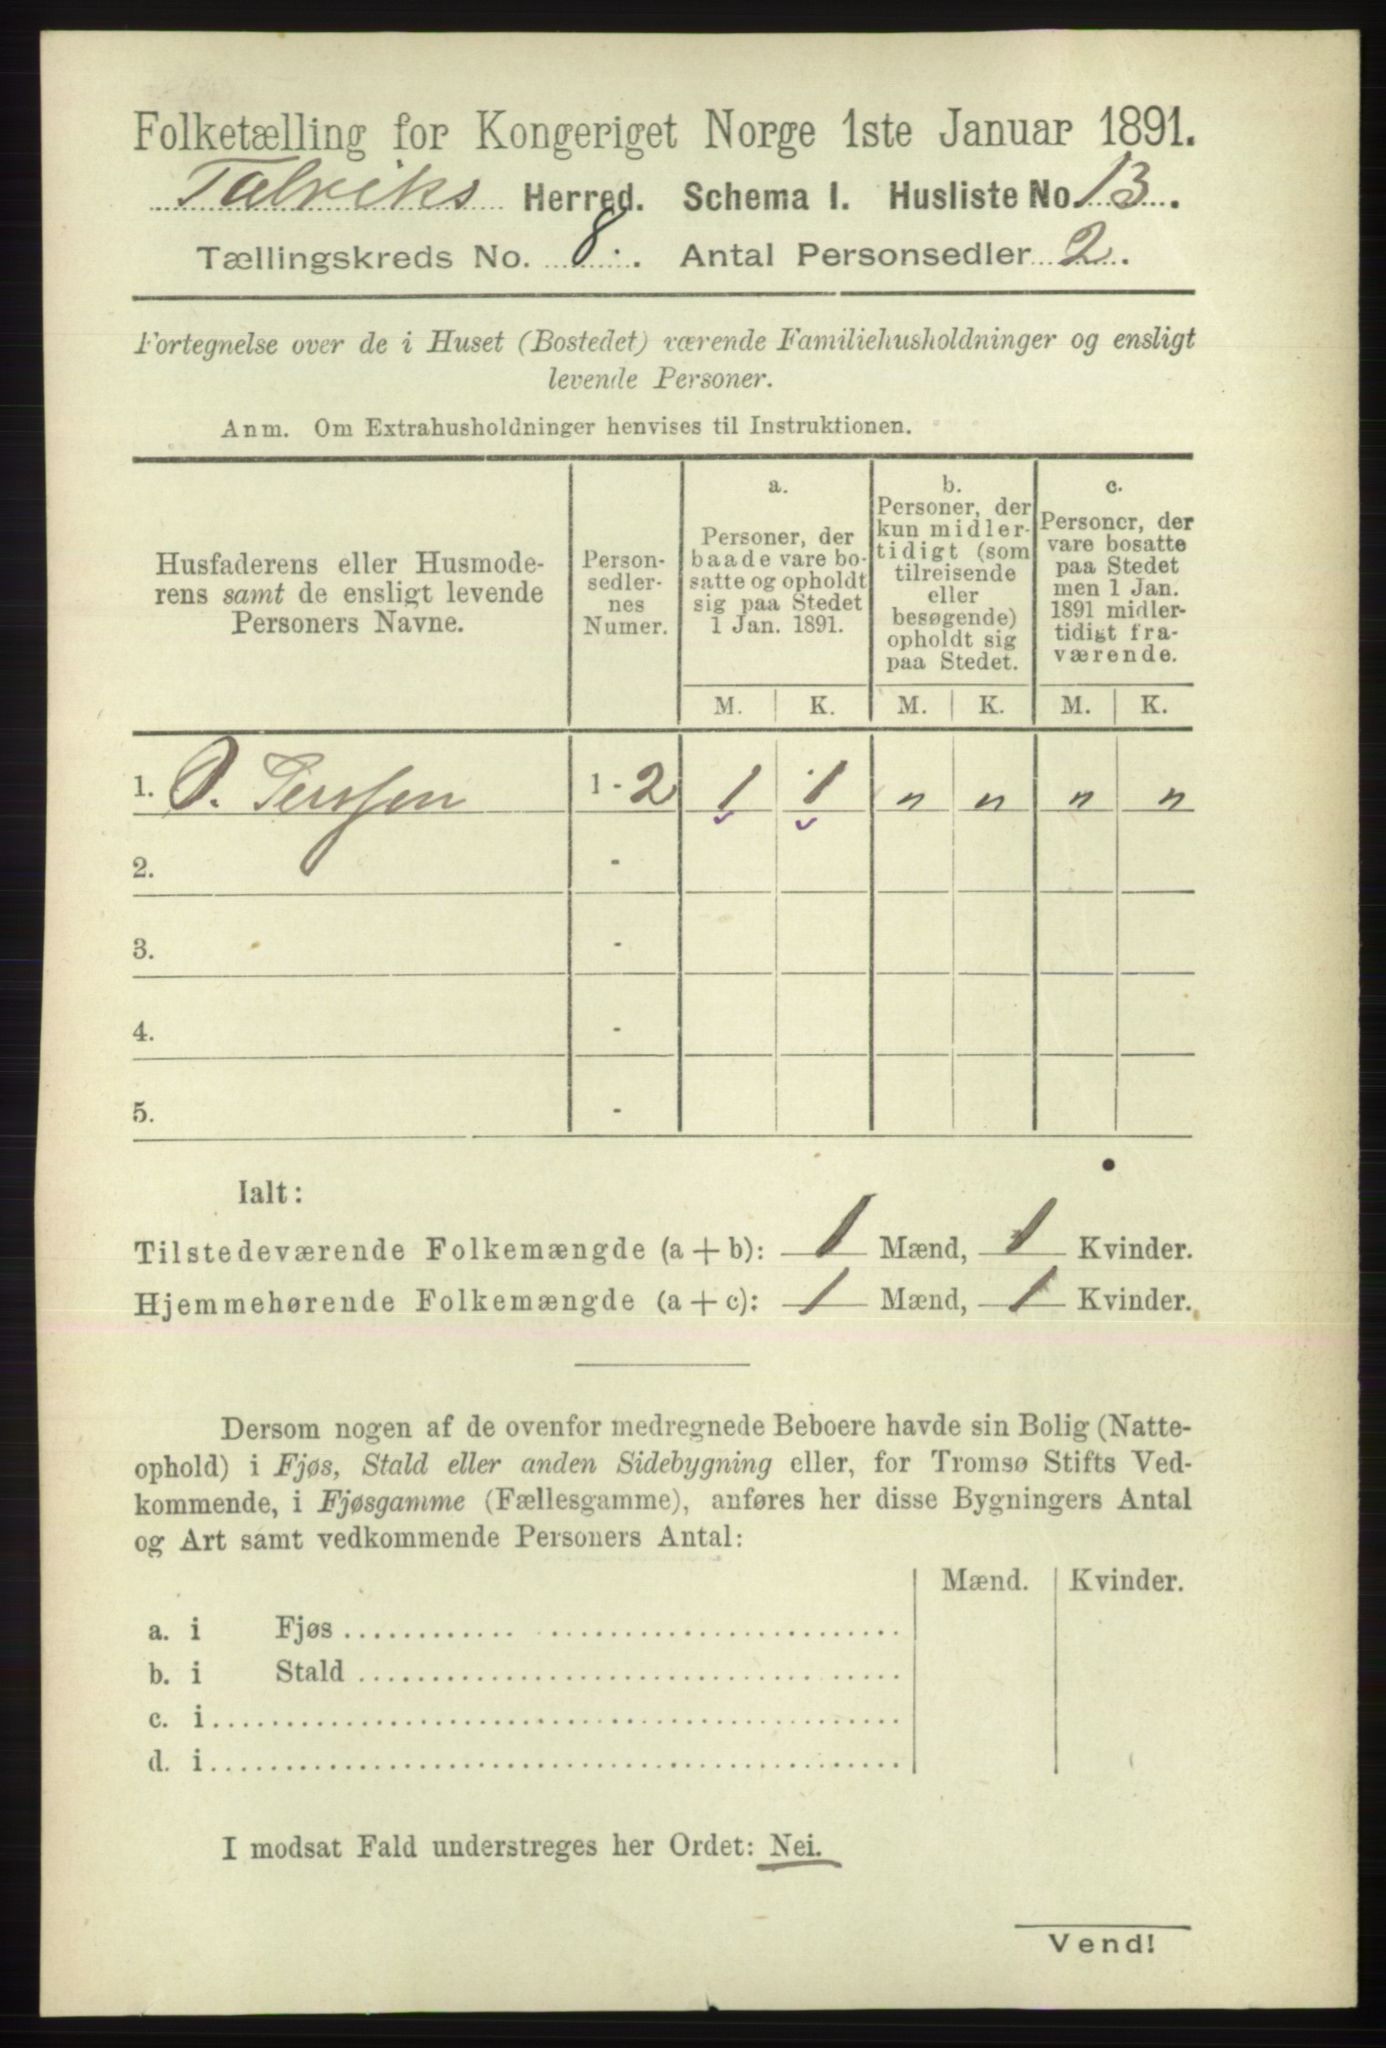 Folketælling for Kongeriget Norge 1ste Januar 1891.
Talviks Herred. Schema I. Husliste No. 13.
Tællingskreds No. 8. Antal Personsedler 2.
Fortegnelse over de i Huset (Bostedet) værende Familiehusholdninger og ensligt
levende Personer.
Anm. Om Extrahusholdninger henvises til Instruktionen.
Husfaderens eller Husmode-
rens samt de ensligt levende
Personers Navne.
Person-
sedler-
nes
Numer.
a.
Personer, der
baade vare bo-
satte og opholdt
sig paa Stedet
1 Jan. 1891.
b.
Personer, der
kun midler-
tidigt (som
tilreisende
eller
besøgende)
opholdt sig
paa Stedet.
c.
Personer, der
vare bosatte
paa Stedet
men 1 Jan.
1891 midler-
tidigt fra-
værende.
M. K. M. K. M. K.
1. P. Persson 1 - 2 1 1 " " " "
2. -
3. -
4. -
5. -
Ialt:
Tilstedeværende Folkemængde (a + b): 1 Mænd, 1 Kvinder.
Hjemmehørende Folkemængde (a + c): 1 Mænd, 1 Kvinder.
Dersom nogen af de ovenfor medregnede Beboere havde sin Bolig (Natte-
ophold) i Fjøs, Stald eller anden Sidebygning eller, for Tromsø Stifts Ved-
kommende, i Fjøsgamme (Fællesgamme), anføres her disse Bygningers Antal
og Art samt vedkommende Personers Antal:
Mænd. Kvinder.
a. i Fjøs
b. i Stald
c. i
d. i
I modsat Fald understreges her Ordet: Nei.
Vend!